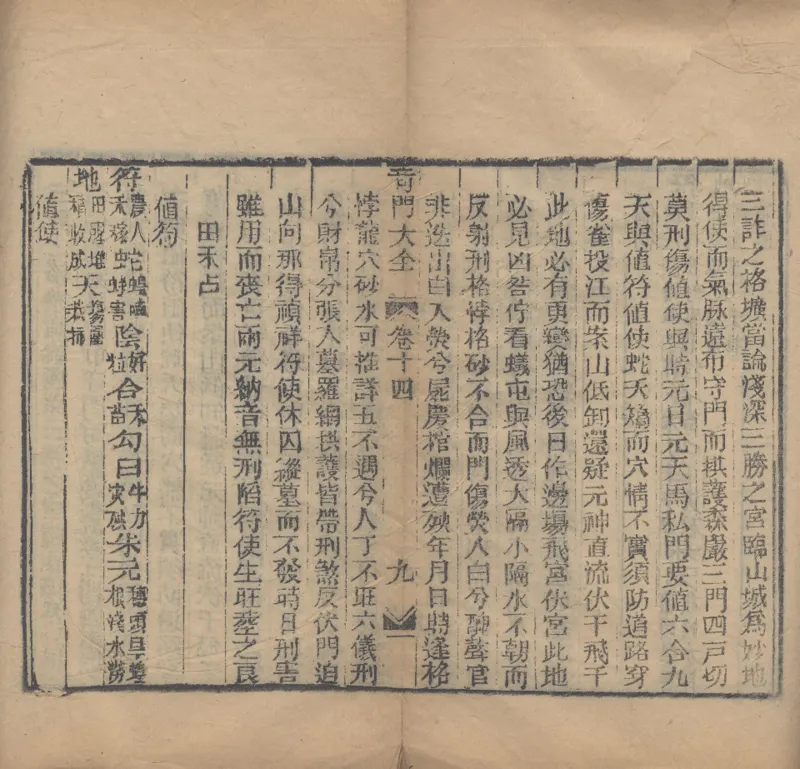 三詐之格壙當論淺深三勝之宮臨山城爲妙地
得使而氣脉遠布守門而拱護森嚴三門四戸切
莫刑傷値使與時元日元天馬私門要値六合九
天與値符値使蛇夭矯而穴情不實須防道路穿
傷雀投江而案山低卸還疑元神直流伏干飛干
此地必有勇變猶恐後日作邊塲飛宮伏宮此地
必見凶咎佇看蟻屯與風透大隔小隔水不朝而
反射刑格悖格砂不合而門傷熒入白兮聊聲官
非迭出白入熒兮屍房棺爛遭殃年月日時逢格
奇門大全 卷十四 九
悖龍穴砂水可推詳五不遇兮人丁不旺六儀刑
兮財帛分張入墓羅網拱護皆帶刑煞反伏門迫
山向那得禎祥符使休囚縱墓而不發時日刑害
雖用而喪亡兩元納音無刑陷符使生旺塟之良
田禾占
値符
符農人禾稼蛇蟮蟮害陰好粒合禾苗勾白牛力灾殃朱元
地田疇稿收成天
値使